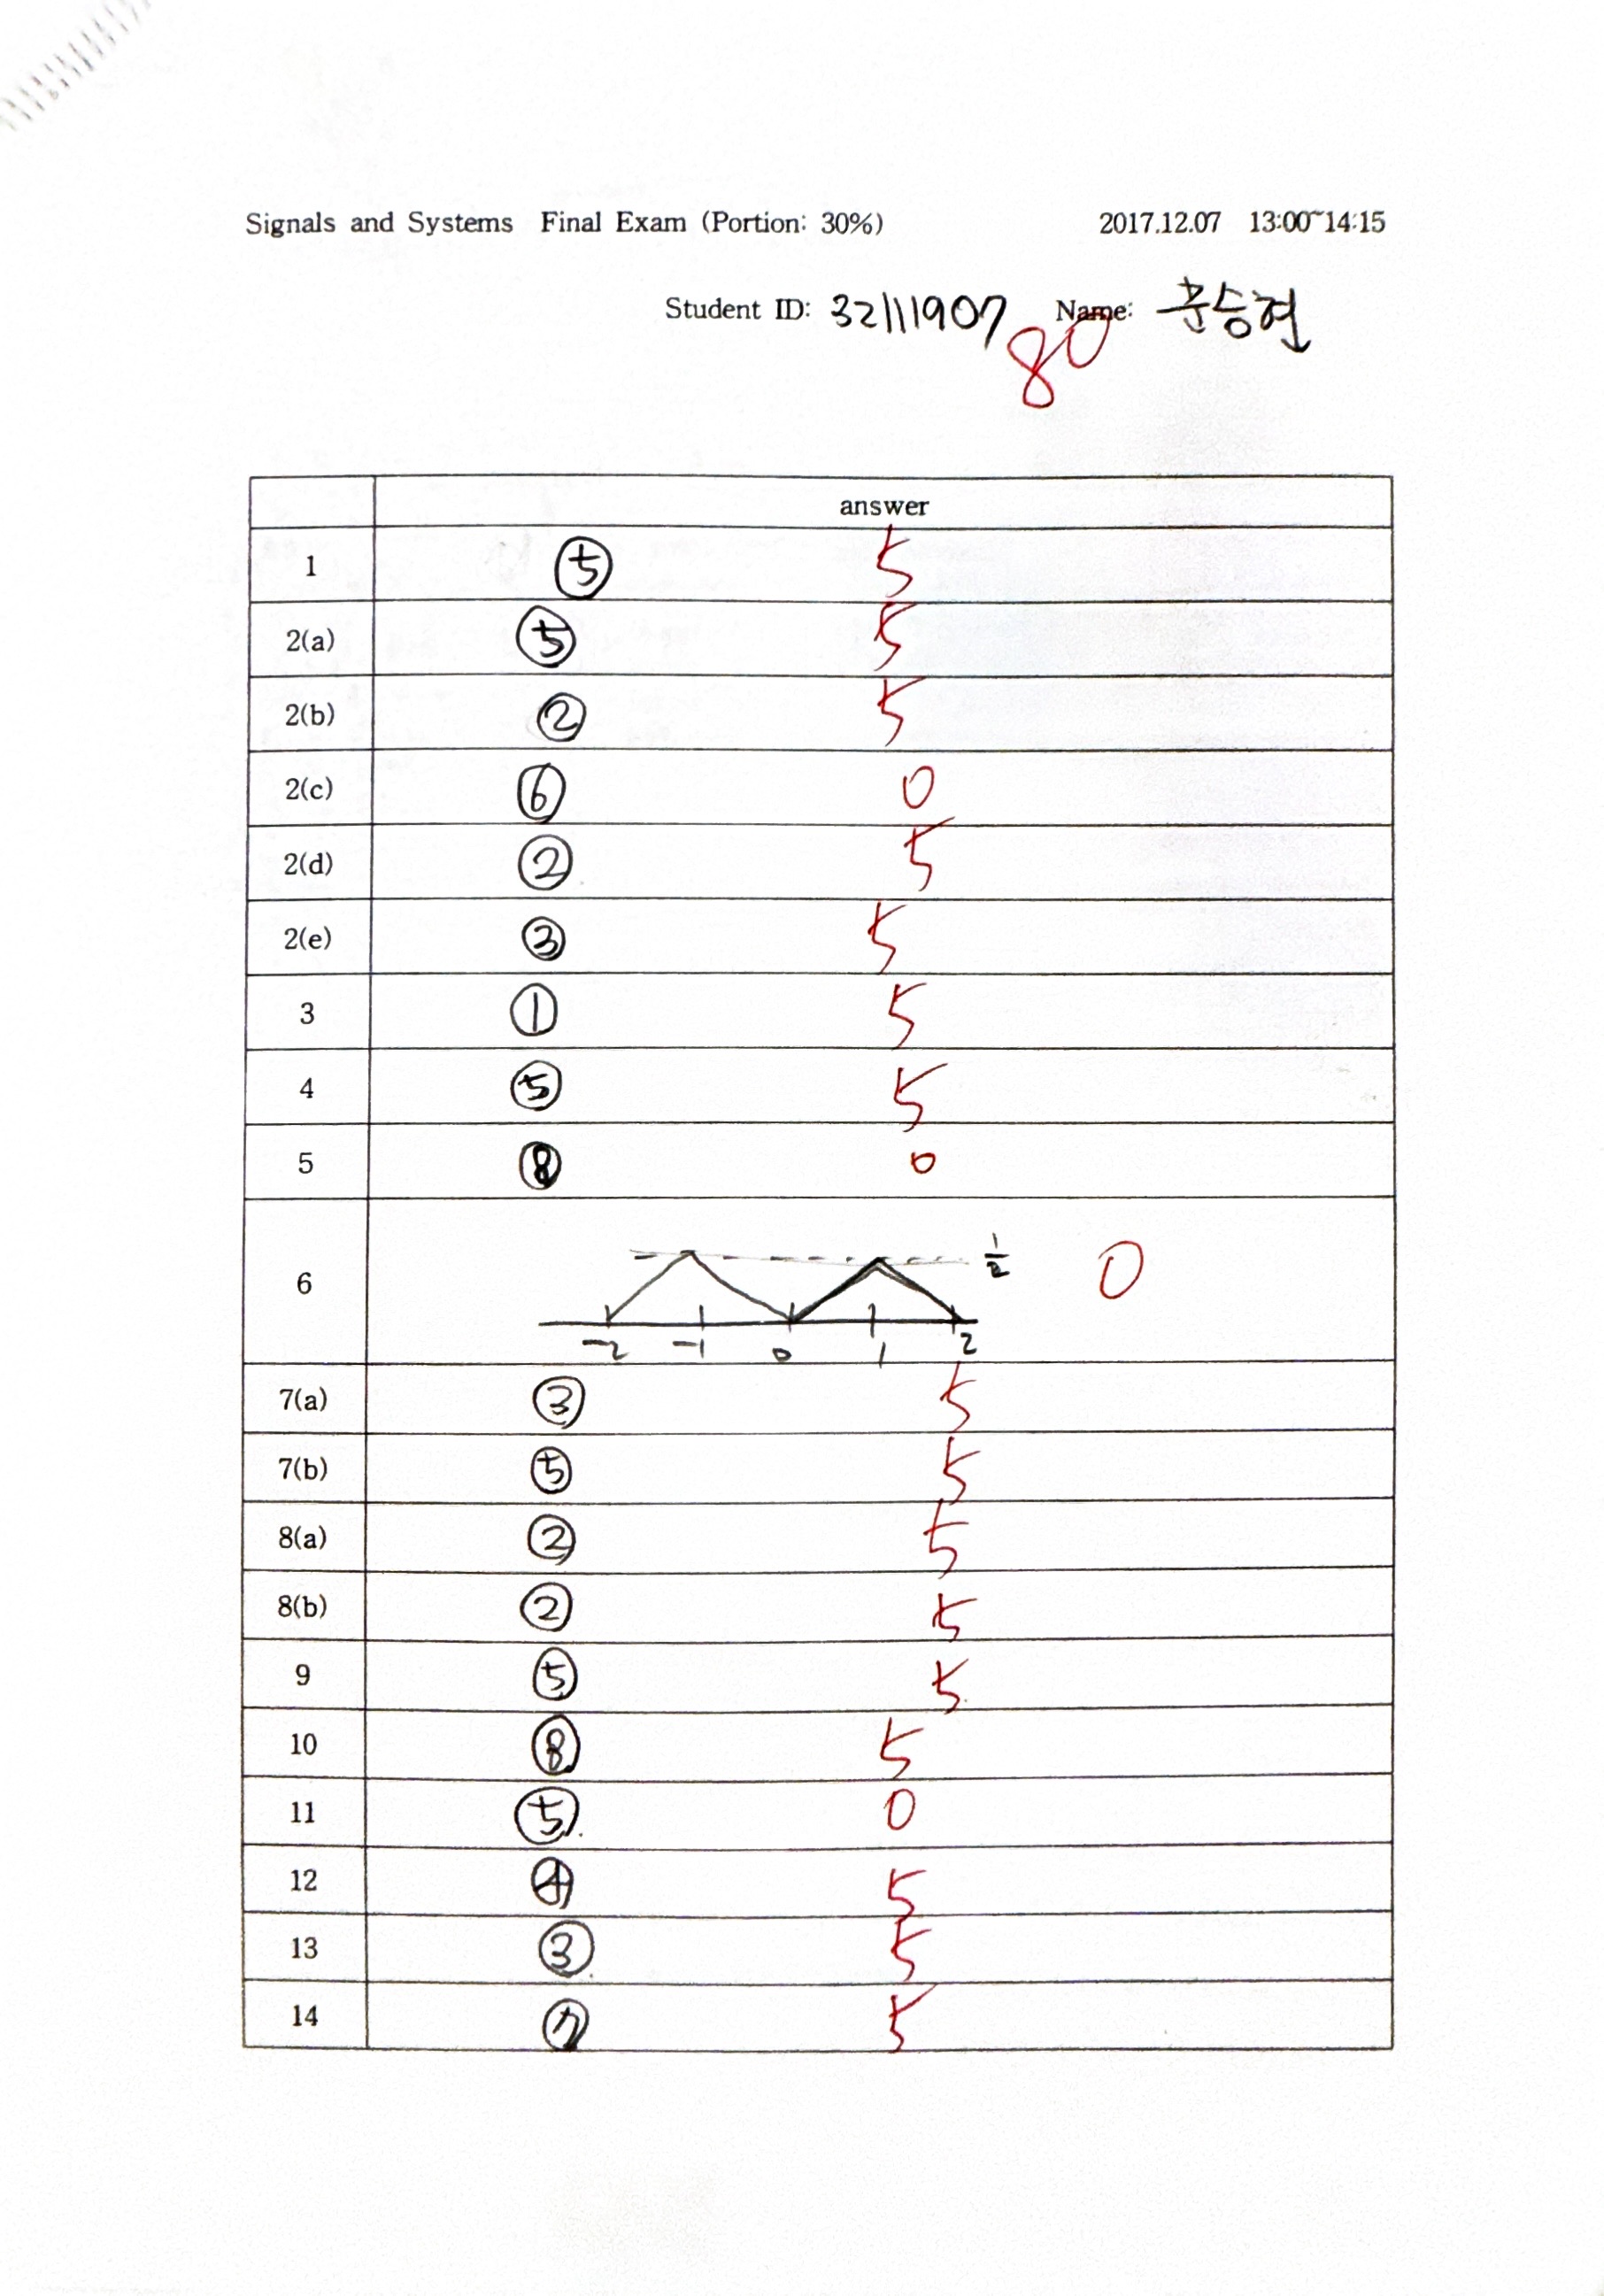 Signals and Systems Final Exam (Portion: 30%) 2017.12.07 13:00~14:15
Student ID: 32111907 Name: 문승현
80
answer
1 ⑤ 5
2(a) ⑤ 5
2(b) ② 5
2(c) ⑥ 0
2(d) ② 5
2(e) ③ 5
3 ① 5
4 ⑤ 5
5 ⑧ 0
6 1/2 0
-2 -1 0 1 2
7(a) ③ 5
7(b) ⑤ 5
8(a) ② 5
8(b) ② 5
9 ⑤ 5
10 ⑧ 5
11 ⑤ 0
12 ④ 5
13 ③ 5
14 ⑦ 5